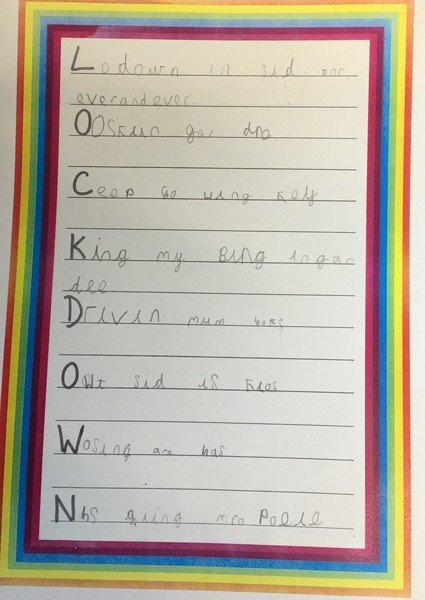 Lodown in sid for
everandever.
OOSkiin gar dro
Ceep go wing Kely
King my Bing in gar
dee.
Drivin mum bors
Owt sid is Klos
Wosing are has
Nhs the king mro Polll